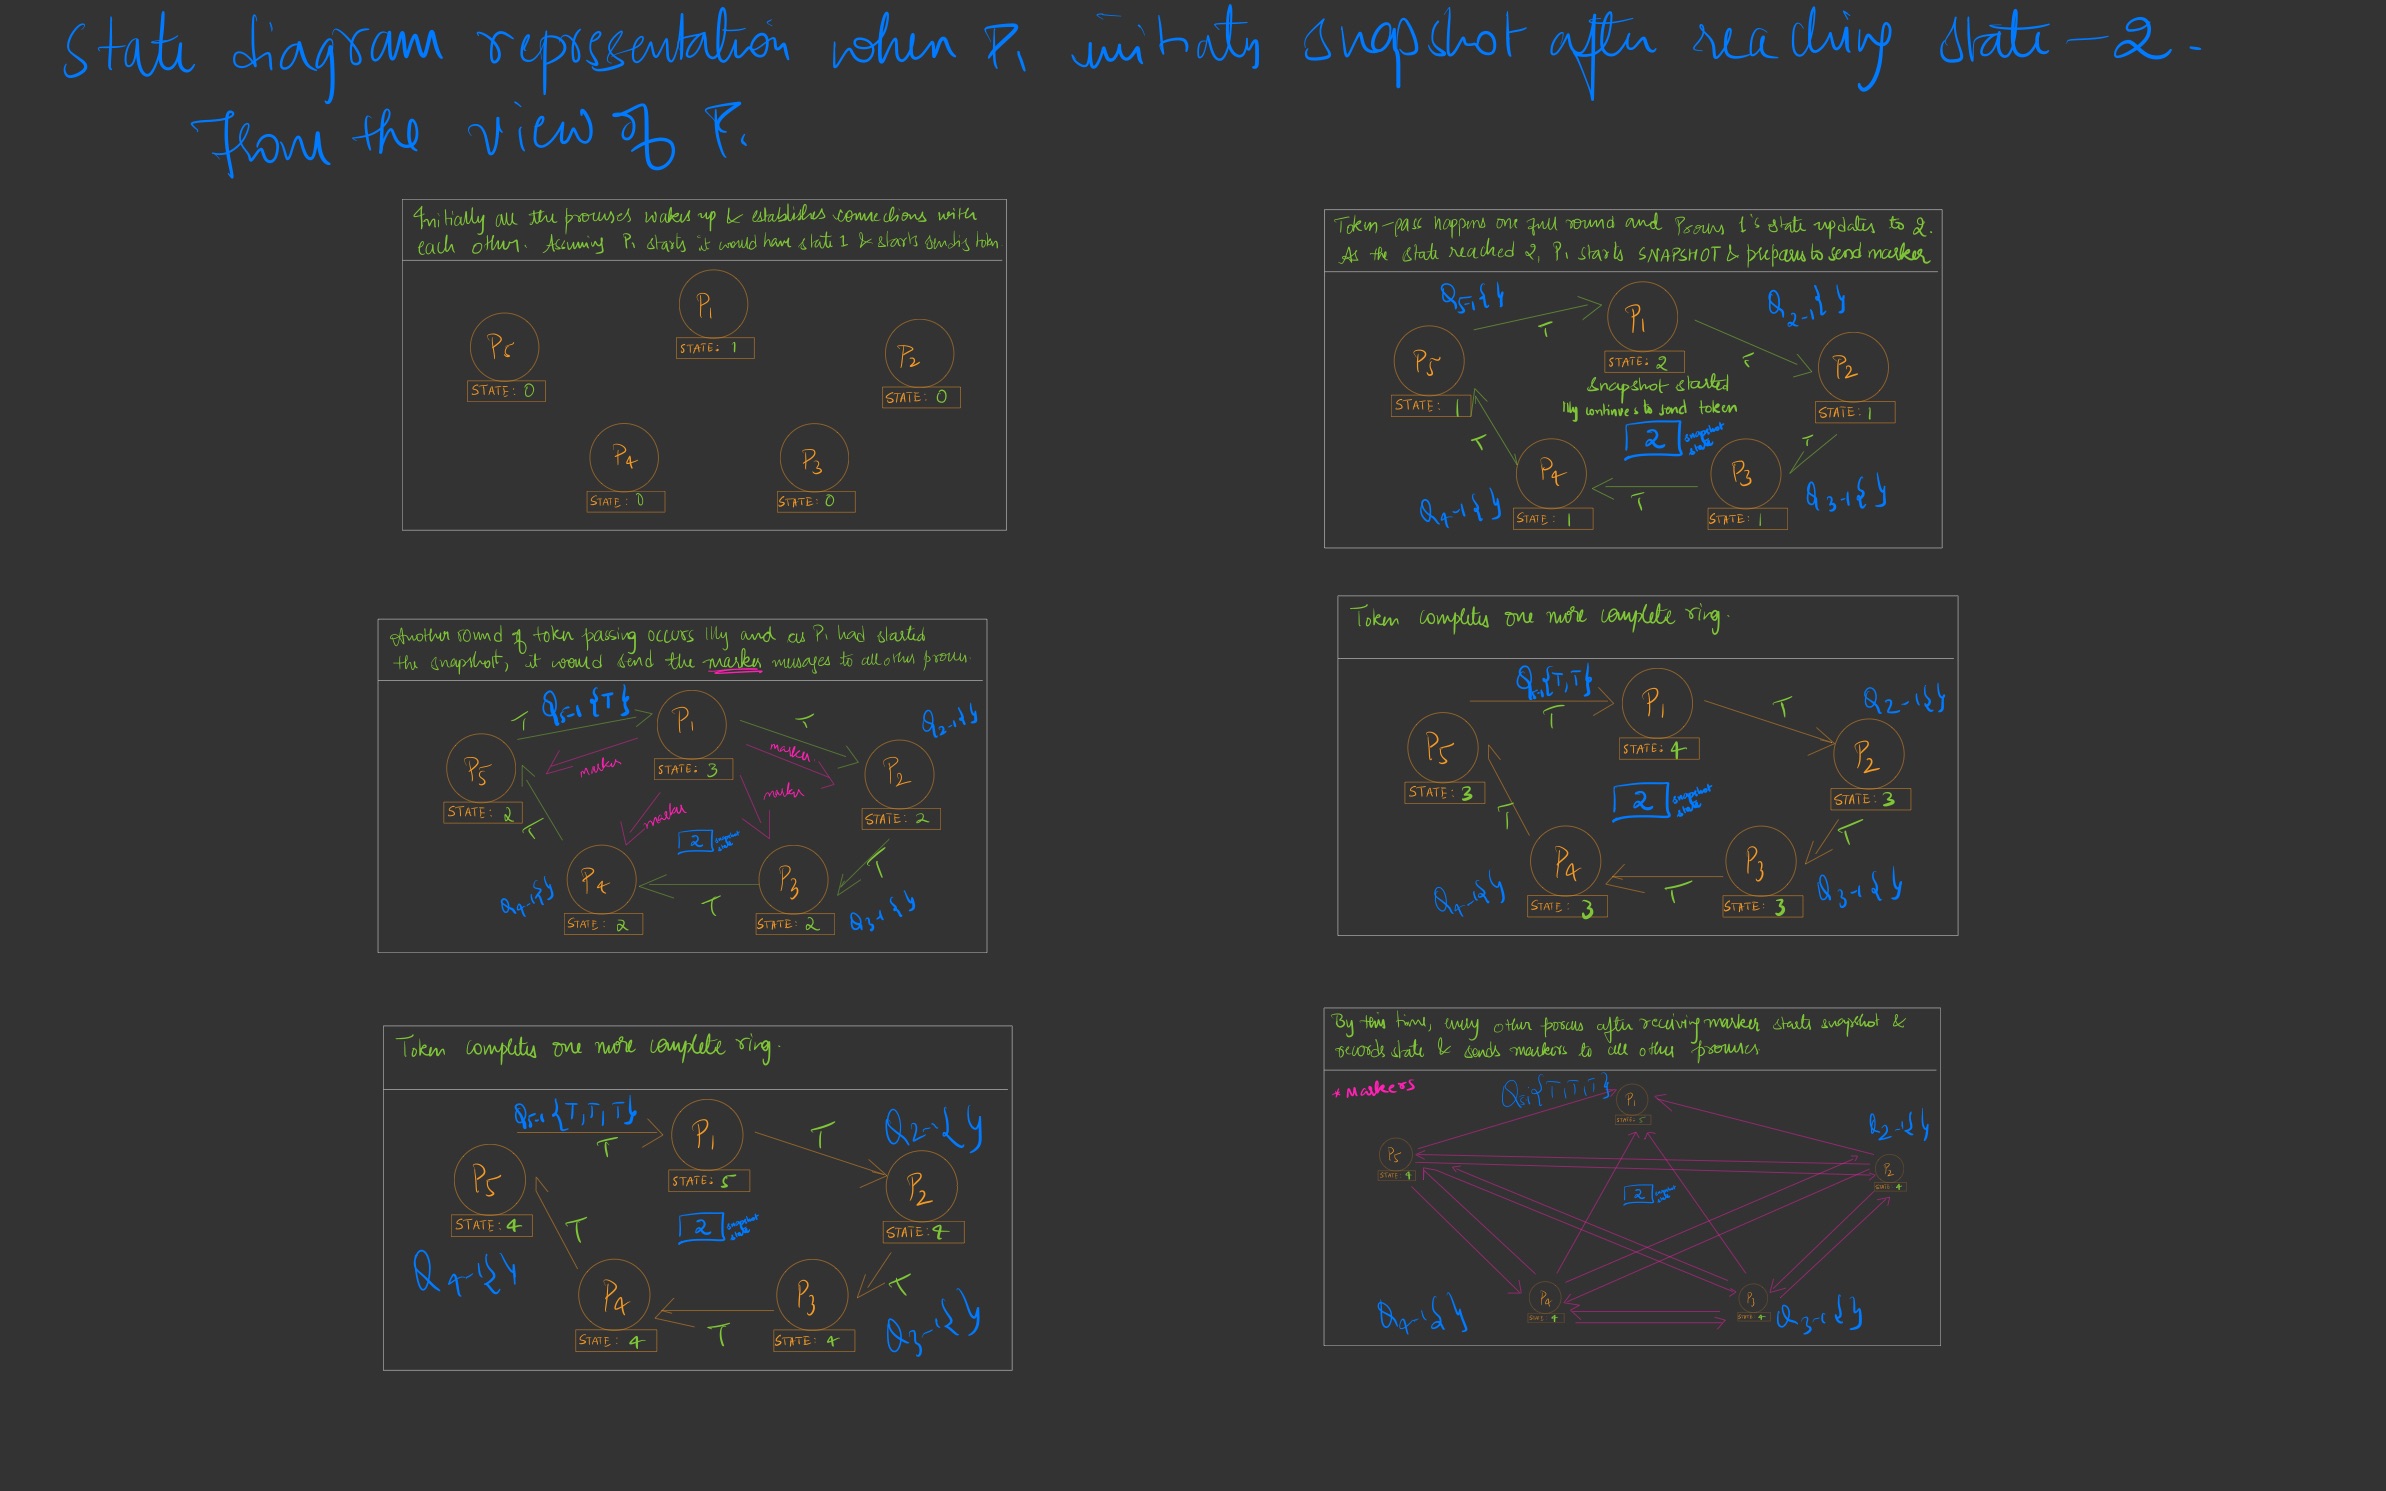 State diagram representation when P1 initiaty snapshot after reaching state-2.
From the view of P1
Initially all the processes wakes up & establishes connections with
each other. Assuming P1 starts it would have state 1 & starts sending token
P1
STATE: 1
P5
STATE: 0
P2
STATE: 0
P4
STATE: 0
P3
STATE: 0
Token-pass happens one full round and Process 1's state updates to 2.
As the state reached 2, P1 starts SNAPSHOT & prepares to send marker
Q5-1{ }
Q2-1{ }
P1
T
STATE: 2
T
P5
STATE: 1
P2
STATE: 1
snapshot started
Illy continues to send token
2 snapshot state
T
T
P4
STATE: 1
P3
STATE: 1
T
Q4-1{ }
Q3-1{ }
Another round of token passing occurs Illy and as P1 had started
the snapshot, it would send the marker messages to all other process.
Q5-1{T}
Q2-1{ }
T
P1
STATE: 3
T
marker
marker
marker
marker
P5
STATE: 2
P2
STATE: 2
2 snapshot state
T
T
P4
STATE: 2
P3
STATE: 2
T
Q4-1{ }
Q3-1{ }
Token completes one more complete ring.
Q5-1{T,T}
Q2-1{ }
T
P1
STATE: 4
T
P5
STATE: 3
P2
STATE: 3
2 snapshot state
T
T
P4
STATE: 3
P3
STATE: 3
T
Q4-1{ }
Q3-1{ }
Token completes one more complete ring.
Q5-1{T,T,T}
Q2-1{ }
T
P1
STATE: 5
T
P5
STATE: 4
P2
STATE: 4
2 snapshot state
T
T
P4
STATE: 4
P3
STATE: 4
T
Q4-1{ }
Q3-1{ }
By this time, every other porcus after receiving marker starts snapshot &
records state & sends markers to all other processes
* Markers
Q5-1{T,T,T}
P1
STATE: 5
Q2-1{ }
P5
STATE: 4
P2
STATE: 4
2 snapshot state
P4
STATE: 4
P3
STATE: 4
Q4-1{ }
Q3-1{ }